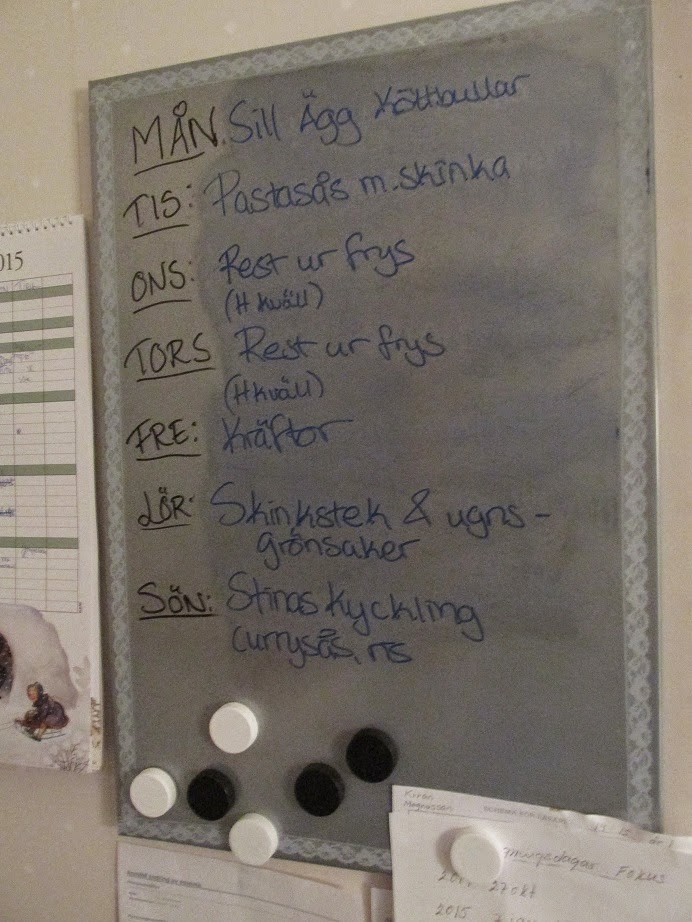 MÅN. Sill Ägg Köttbullar
TIS: Pastasås m. skinka
ONS: Rest ur frys
(H kväll)
TORS Rest ur frys
(H kväll)
FRE: Kräftor
LÖR: Skinkstek & ugns-
grönsaker
SÖN: Stinas Kyckling
currysås, ris
015
Fokus
27 okt
2015